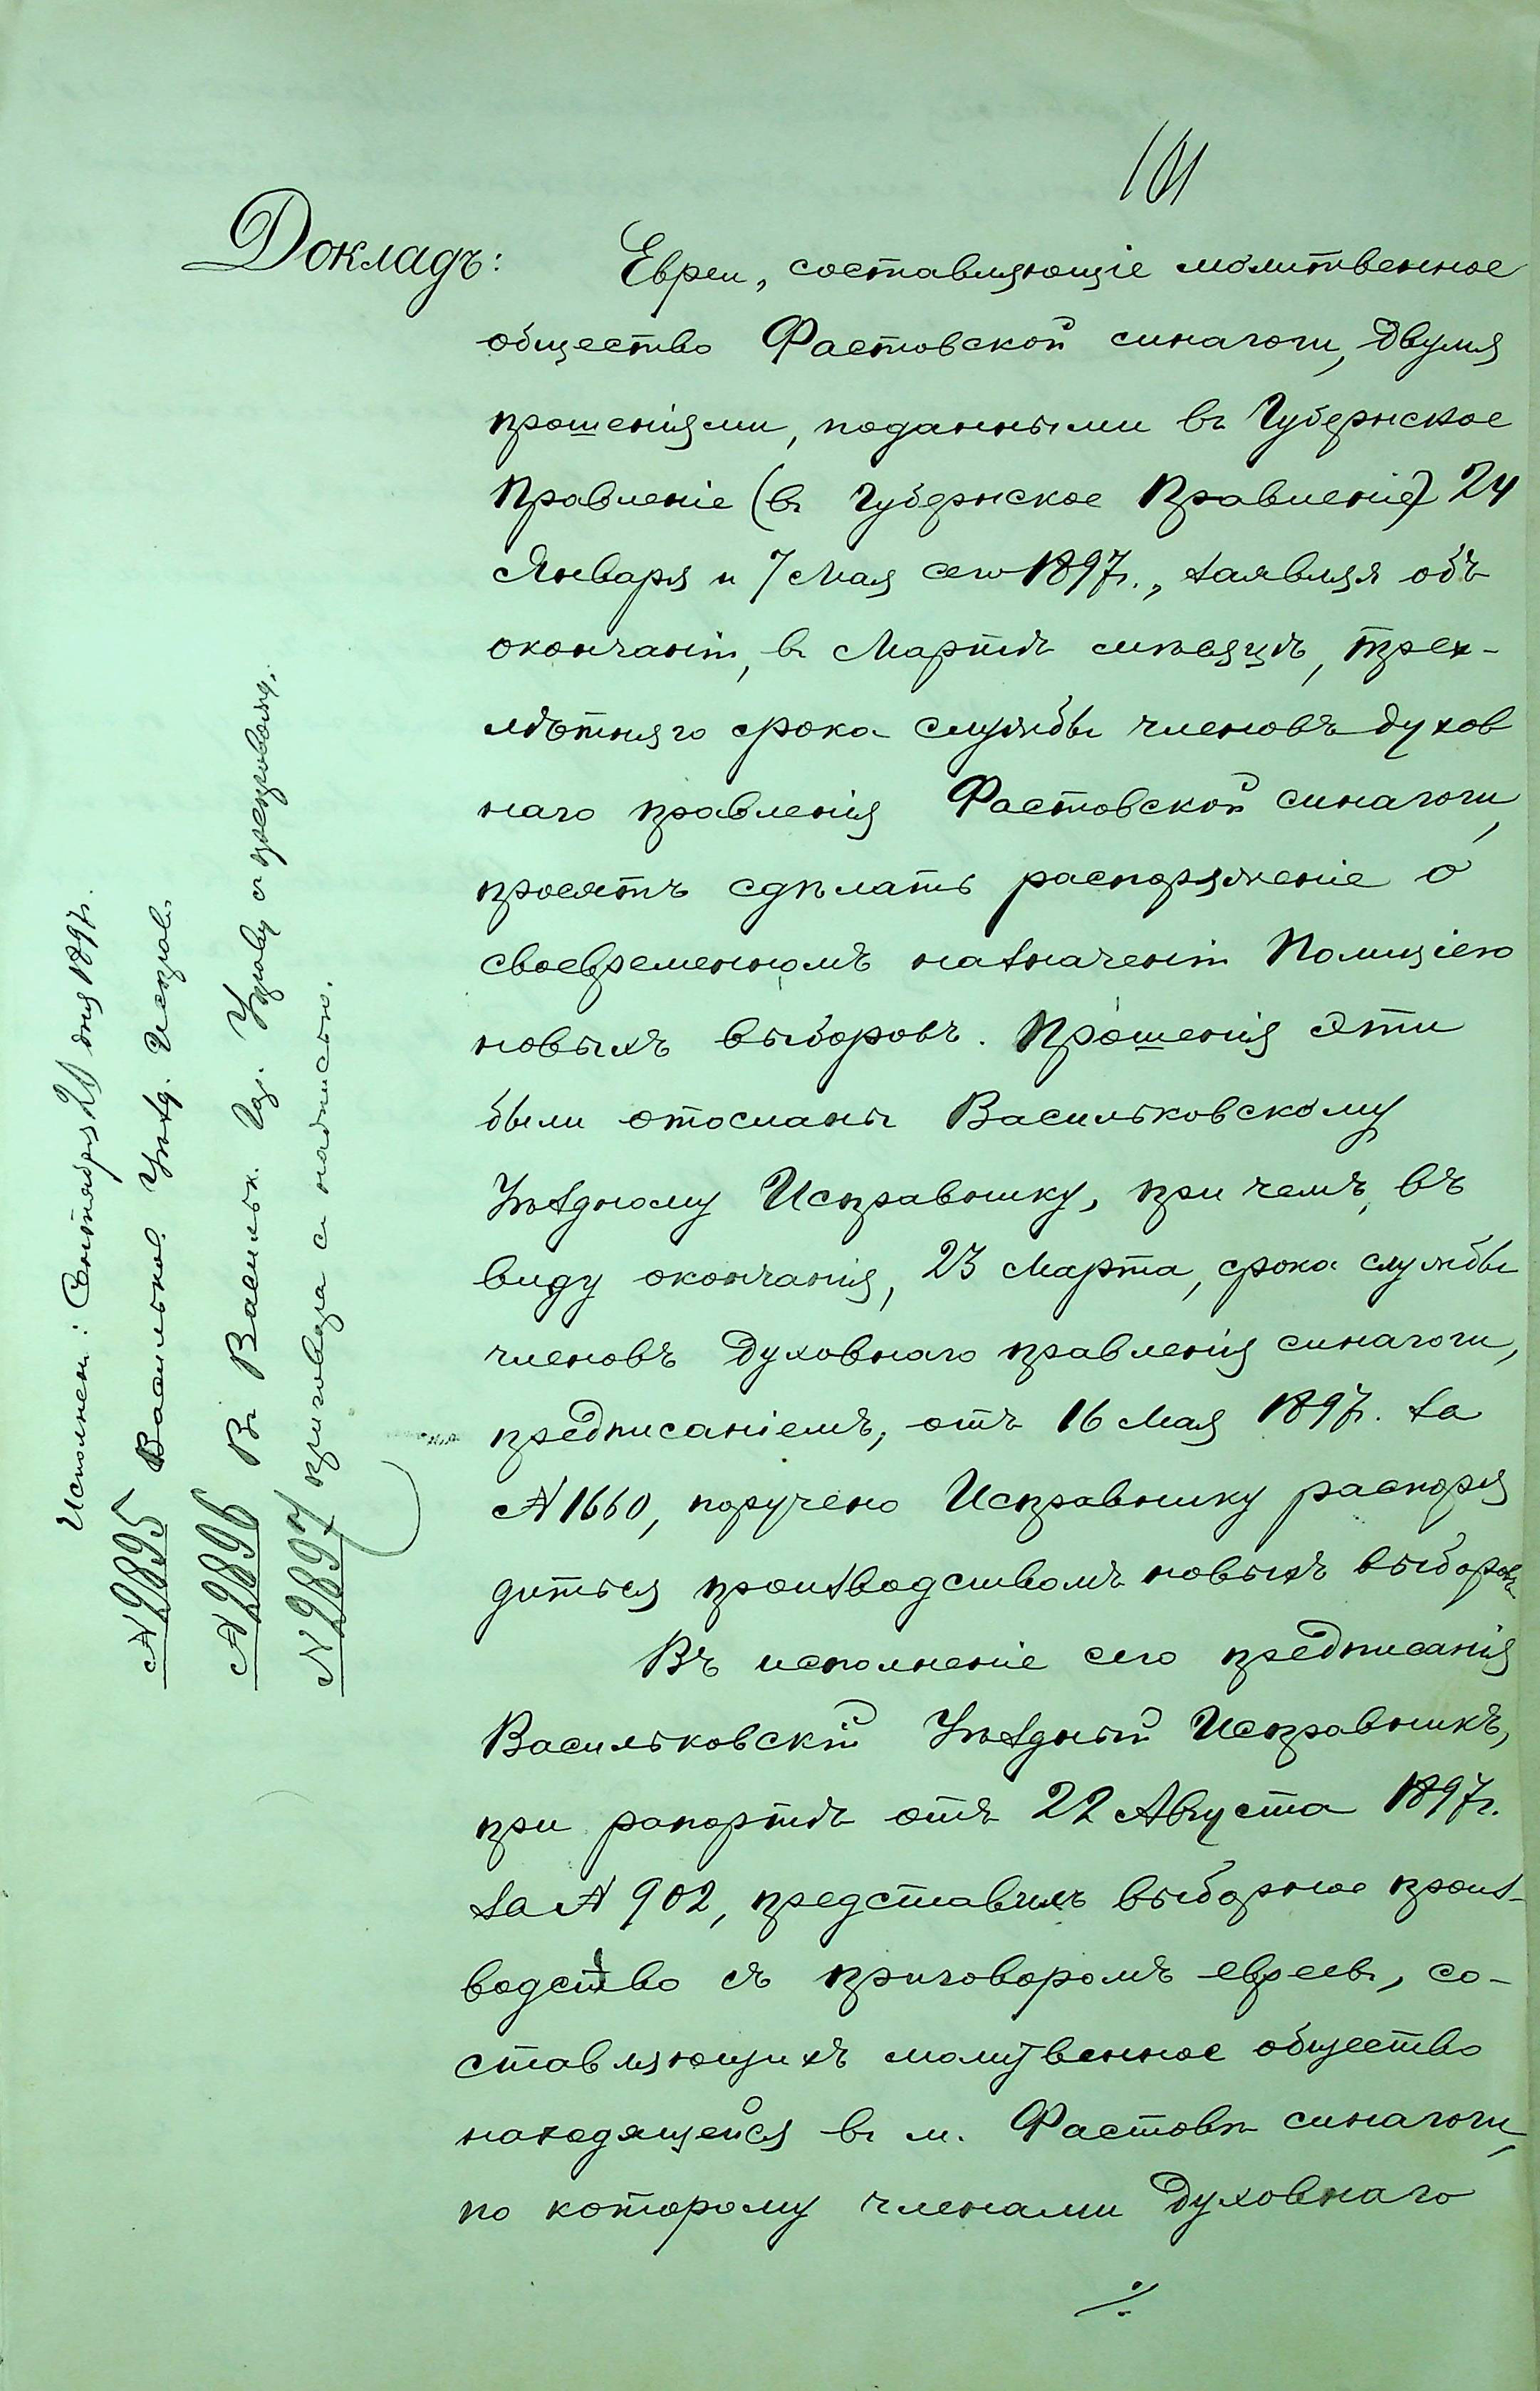 101
Докладъ:
Евреи, составляющіе молитвенное
общество Фастовской синагоги, двумя
прошеніями, поданными въ Губернское
Правленіе (въ Губернское Правленіе) 24
Января и 7 Мая сего 1897г., заявляя объ
окончаніи, въ Мартѣ мѣсяцѣ, трех-
лѣтняго срока службы членовъ духов
наго правленія Фастовской синагоги,
просятъ сдѣлать распоряженіе о
своевременномъ назначеніи Полиціею
новыхъ выборовъ. Прошенія эти
были отосланы Васильковскому
Уѣздному Исправнику, при чемъ, въ
виду окончанія, 23 Марта, срока службы
членовъ духовнаго правленія синагоги,
предписаніемъ, отъ 16 Мая 1897г. за
№ 1660, поручено Исправнику распоря
диться производствомъ новыхъ выборовъ
Въ исполненіе сего предписанія
Васильковскій Уѣздный Исправникъ,
при рапортѣ отъ 22 Августа 1897г.
за № 902, представилъ выборное произ-
водство съ приговоромъ евреевъ, со-
ставляющихъ молитвенное общество
находящейся въ м. Фастовѣ синагоги,
по которому членами духовнаго
./.
Исполнен: Сентября 20 дня 1897г.
№ 2895 Васильков. Уѣзд. Исправ.
№ 2896 Въ Васильк. Гор. Управу съ препровожд.
№ 2897 приговора съ надписью.